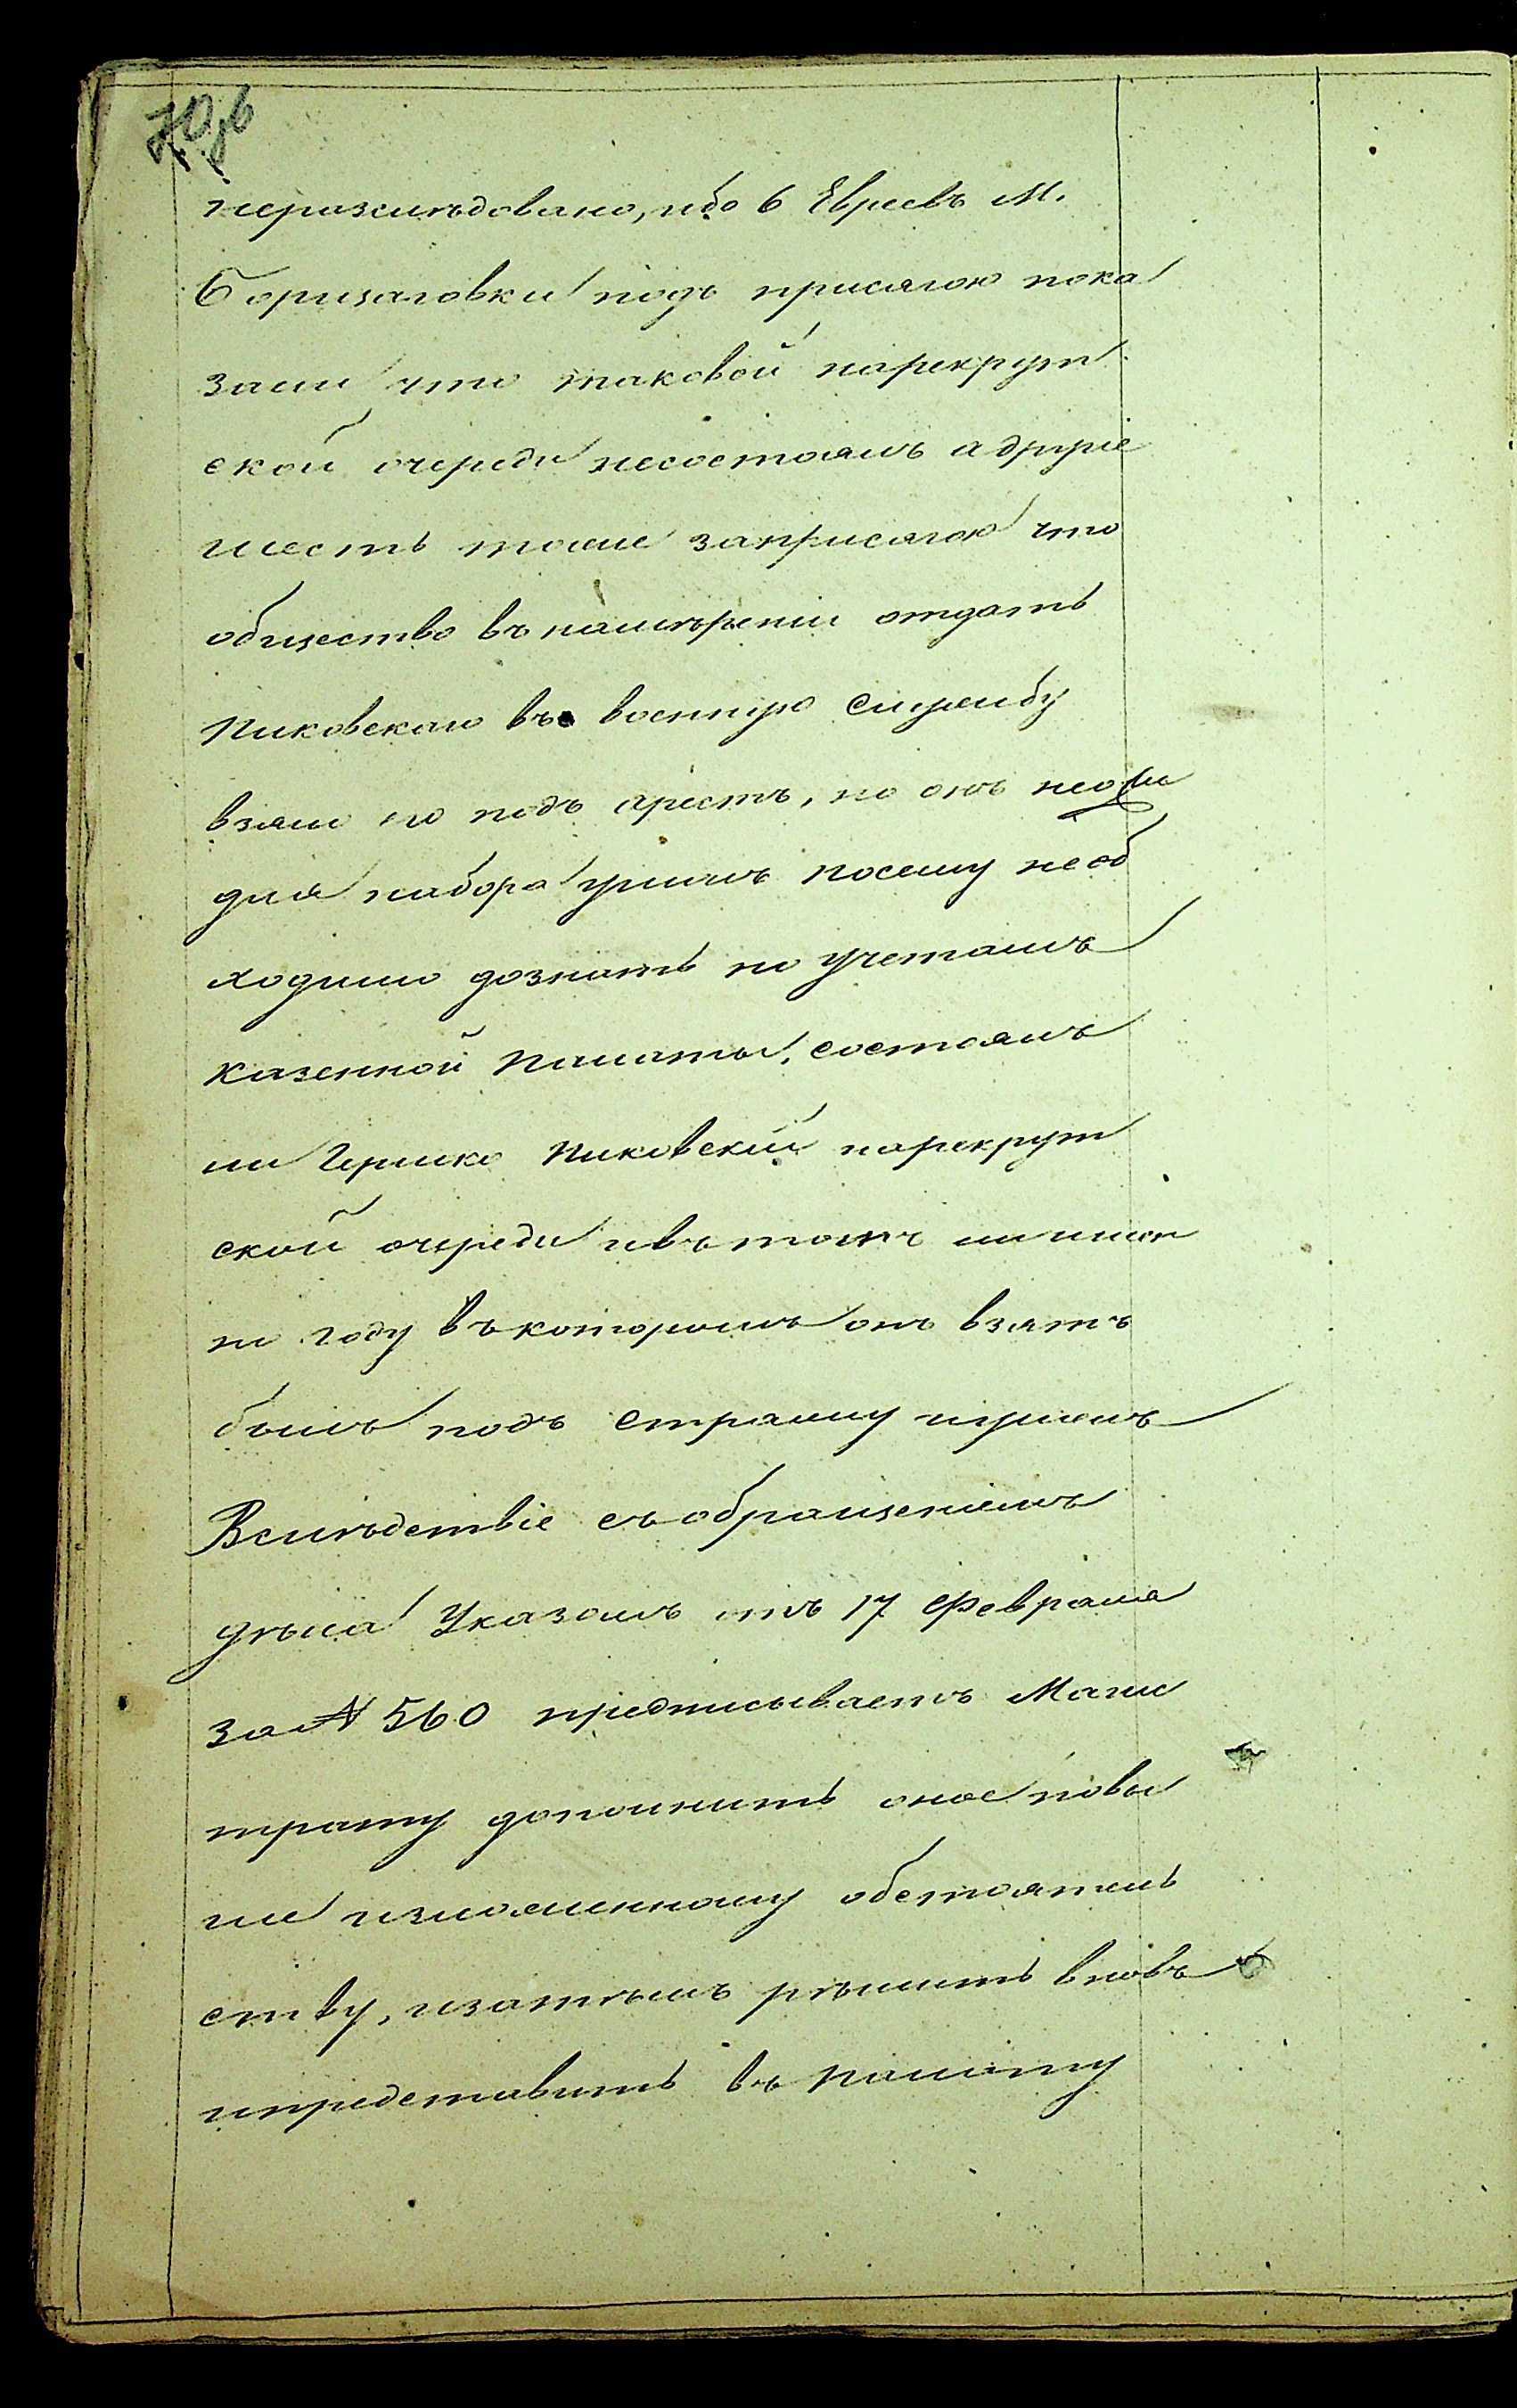 70 об
неразслѣдовано, ибо 6 Евреевъ М.
Горщаговки подъ присягою пока
зали что таковой нарекрут
ской очереди несостоялъ а другіе
шесть тоже заприсягою что
общество въ намѣреніи отдать
Пиковскаго въ военную службу
взяло его подъ арестъ, но онъ неожи
дая набора ушолъ посему необ
ходимо дознать по учетамъ
Казенной Палаты, состоялъ
ли Гершко Пиковскій нарекрут
ской очереди ивъ томъ ли имен
но году въкоторомъ онъ взятъ
былъ подъ стражу иушолъ
Вслѣдствіе съобращеніемъ
дѣла Указомъ отъ 17 Февраля
за № 560 предписываетъ Магис
трату дополнить оное повы
ше изложенному обстоятель
ству, изатѣмъ рѣшить вновь
ипредставить въ Палату